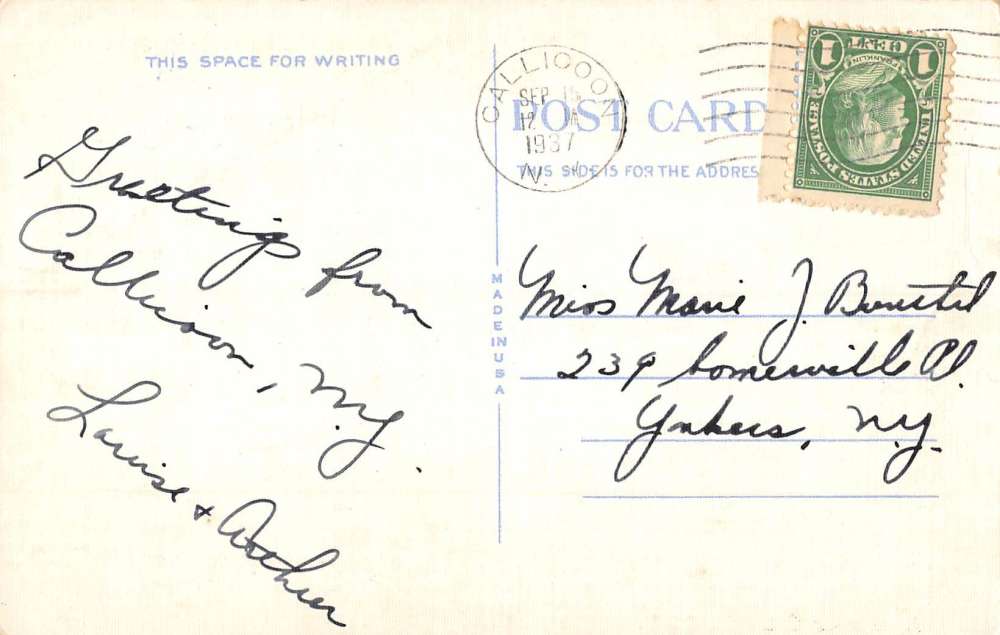 THIS SPACE FOR WRITING
Greeting from
Callicoon, N.Y.
Louise + Arthur
CALLICOON
SEP 15
12
1937
N.Y.
POST CARD
THIS SIDE IS FOR THE ADDRES
UNITED STATES POSTAGE
FRANKLIN
1 CENT 1
MADE IN USA
Miss Marie J.
239 Somerville Pl.
Yonkers, N.Y.